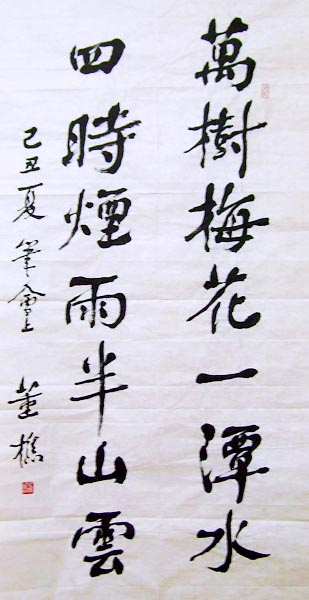 萬樹梅花一潭水
四時煙雨半山雲
己丑夏筆會上
董樵